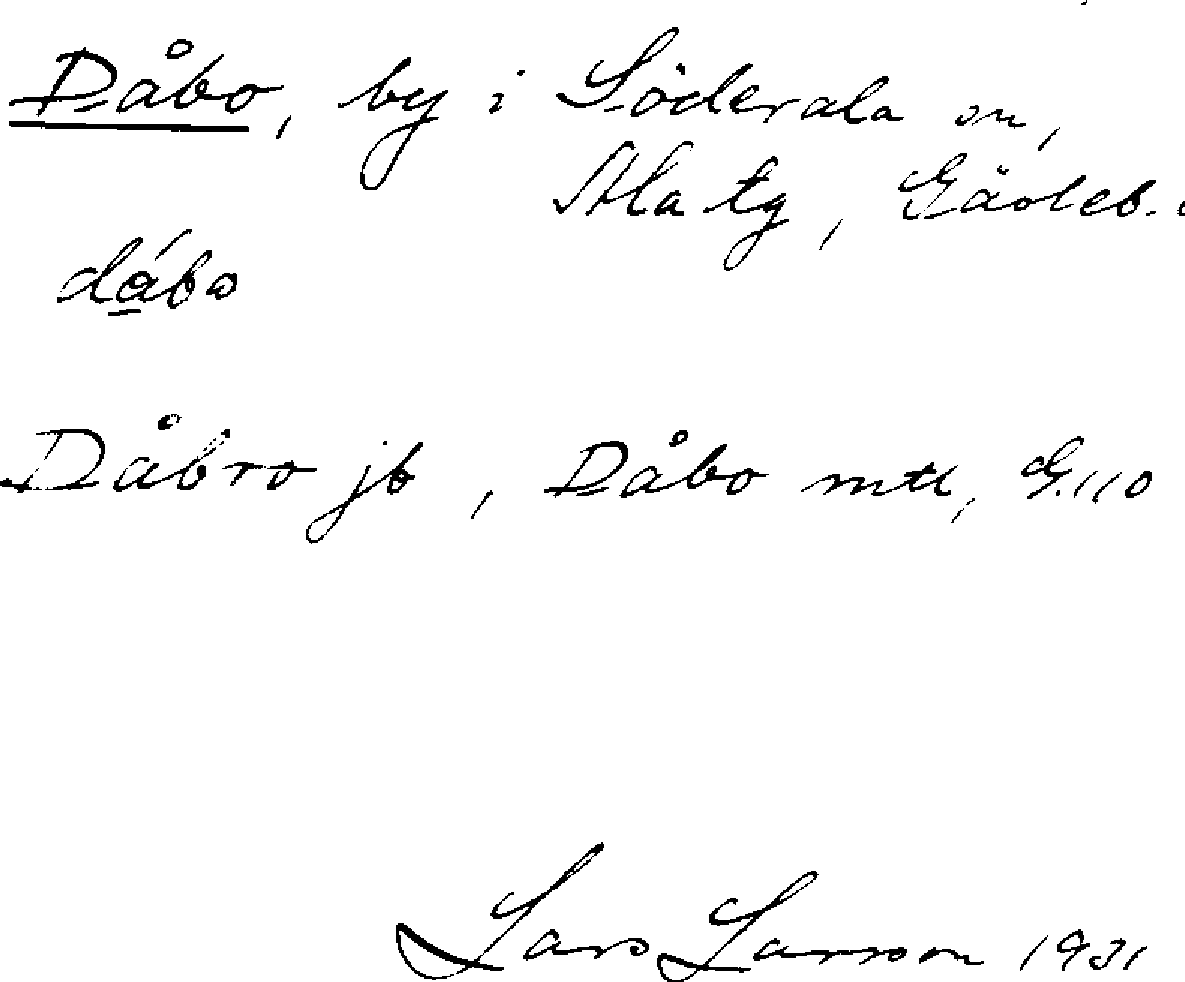 Dåbo, by i Söderala sn,
Ala tg, Gävleb.
dábo
Dåbro jb, Dåbo mtl, G.110
Lars Larsson 1931